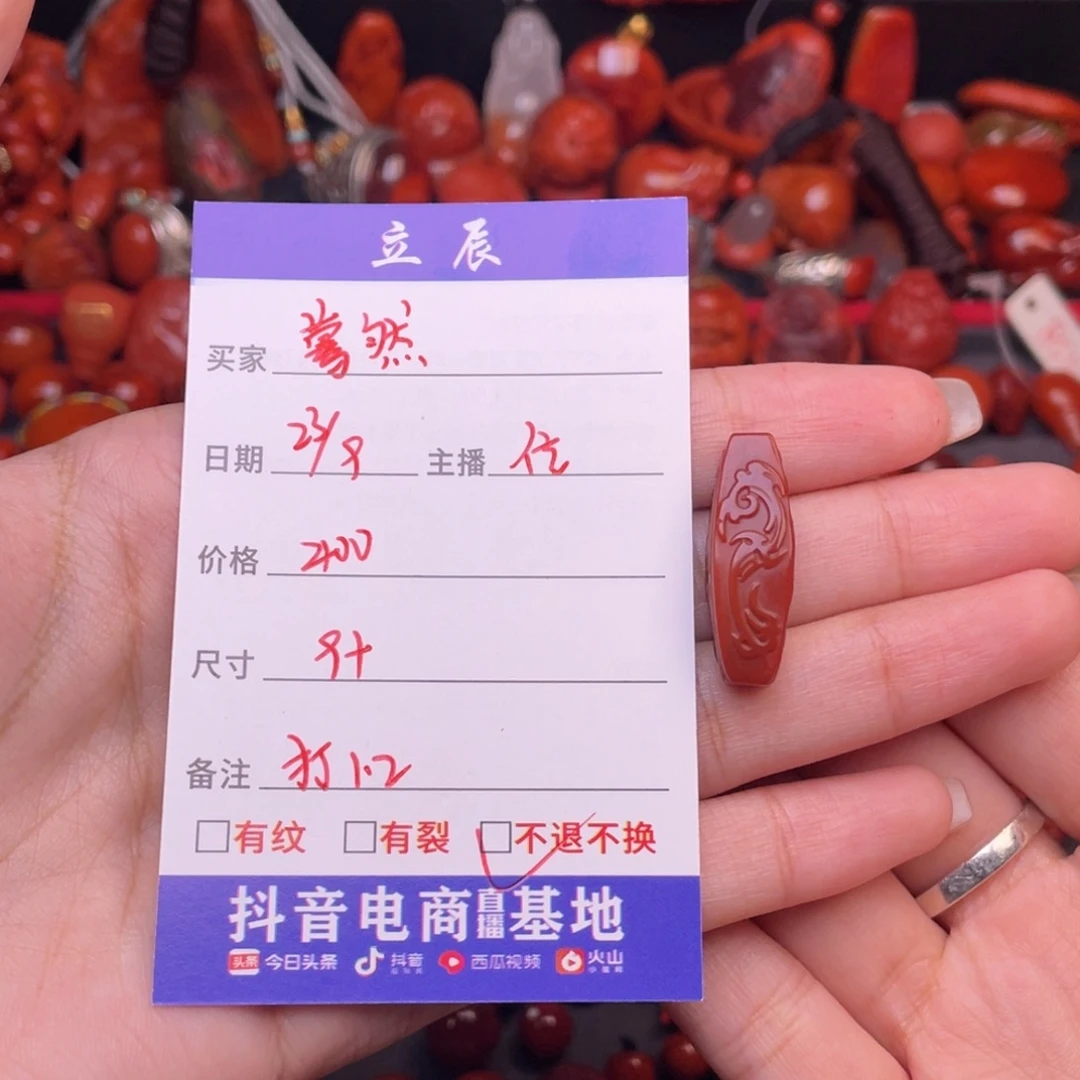 立辰
买家 莺然
日期 23/9 主播 信
价格 400
尺寸 9+
备注 打1.2
有纹 有裂 不退不换
抖音电商直播基地
头条 今日头条 抖音 西瓜视频 火山